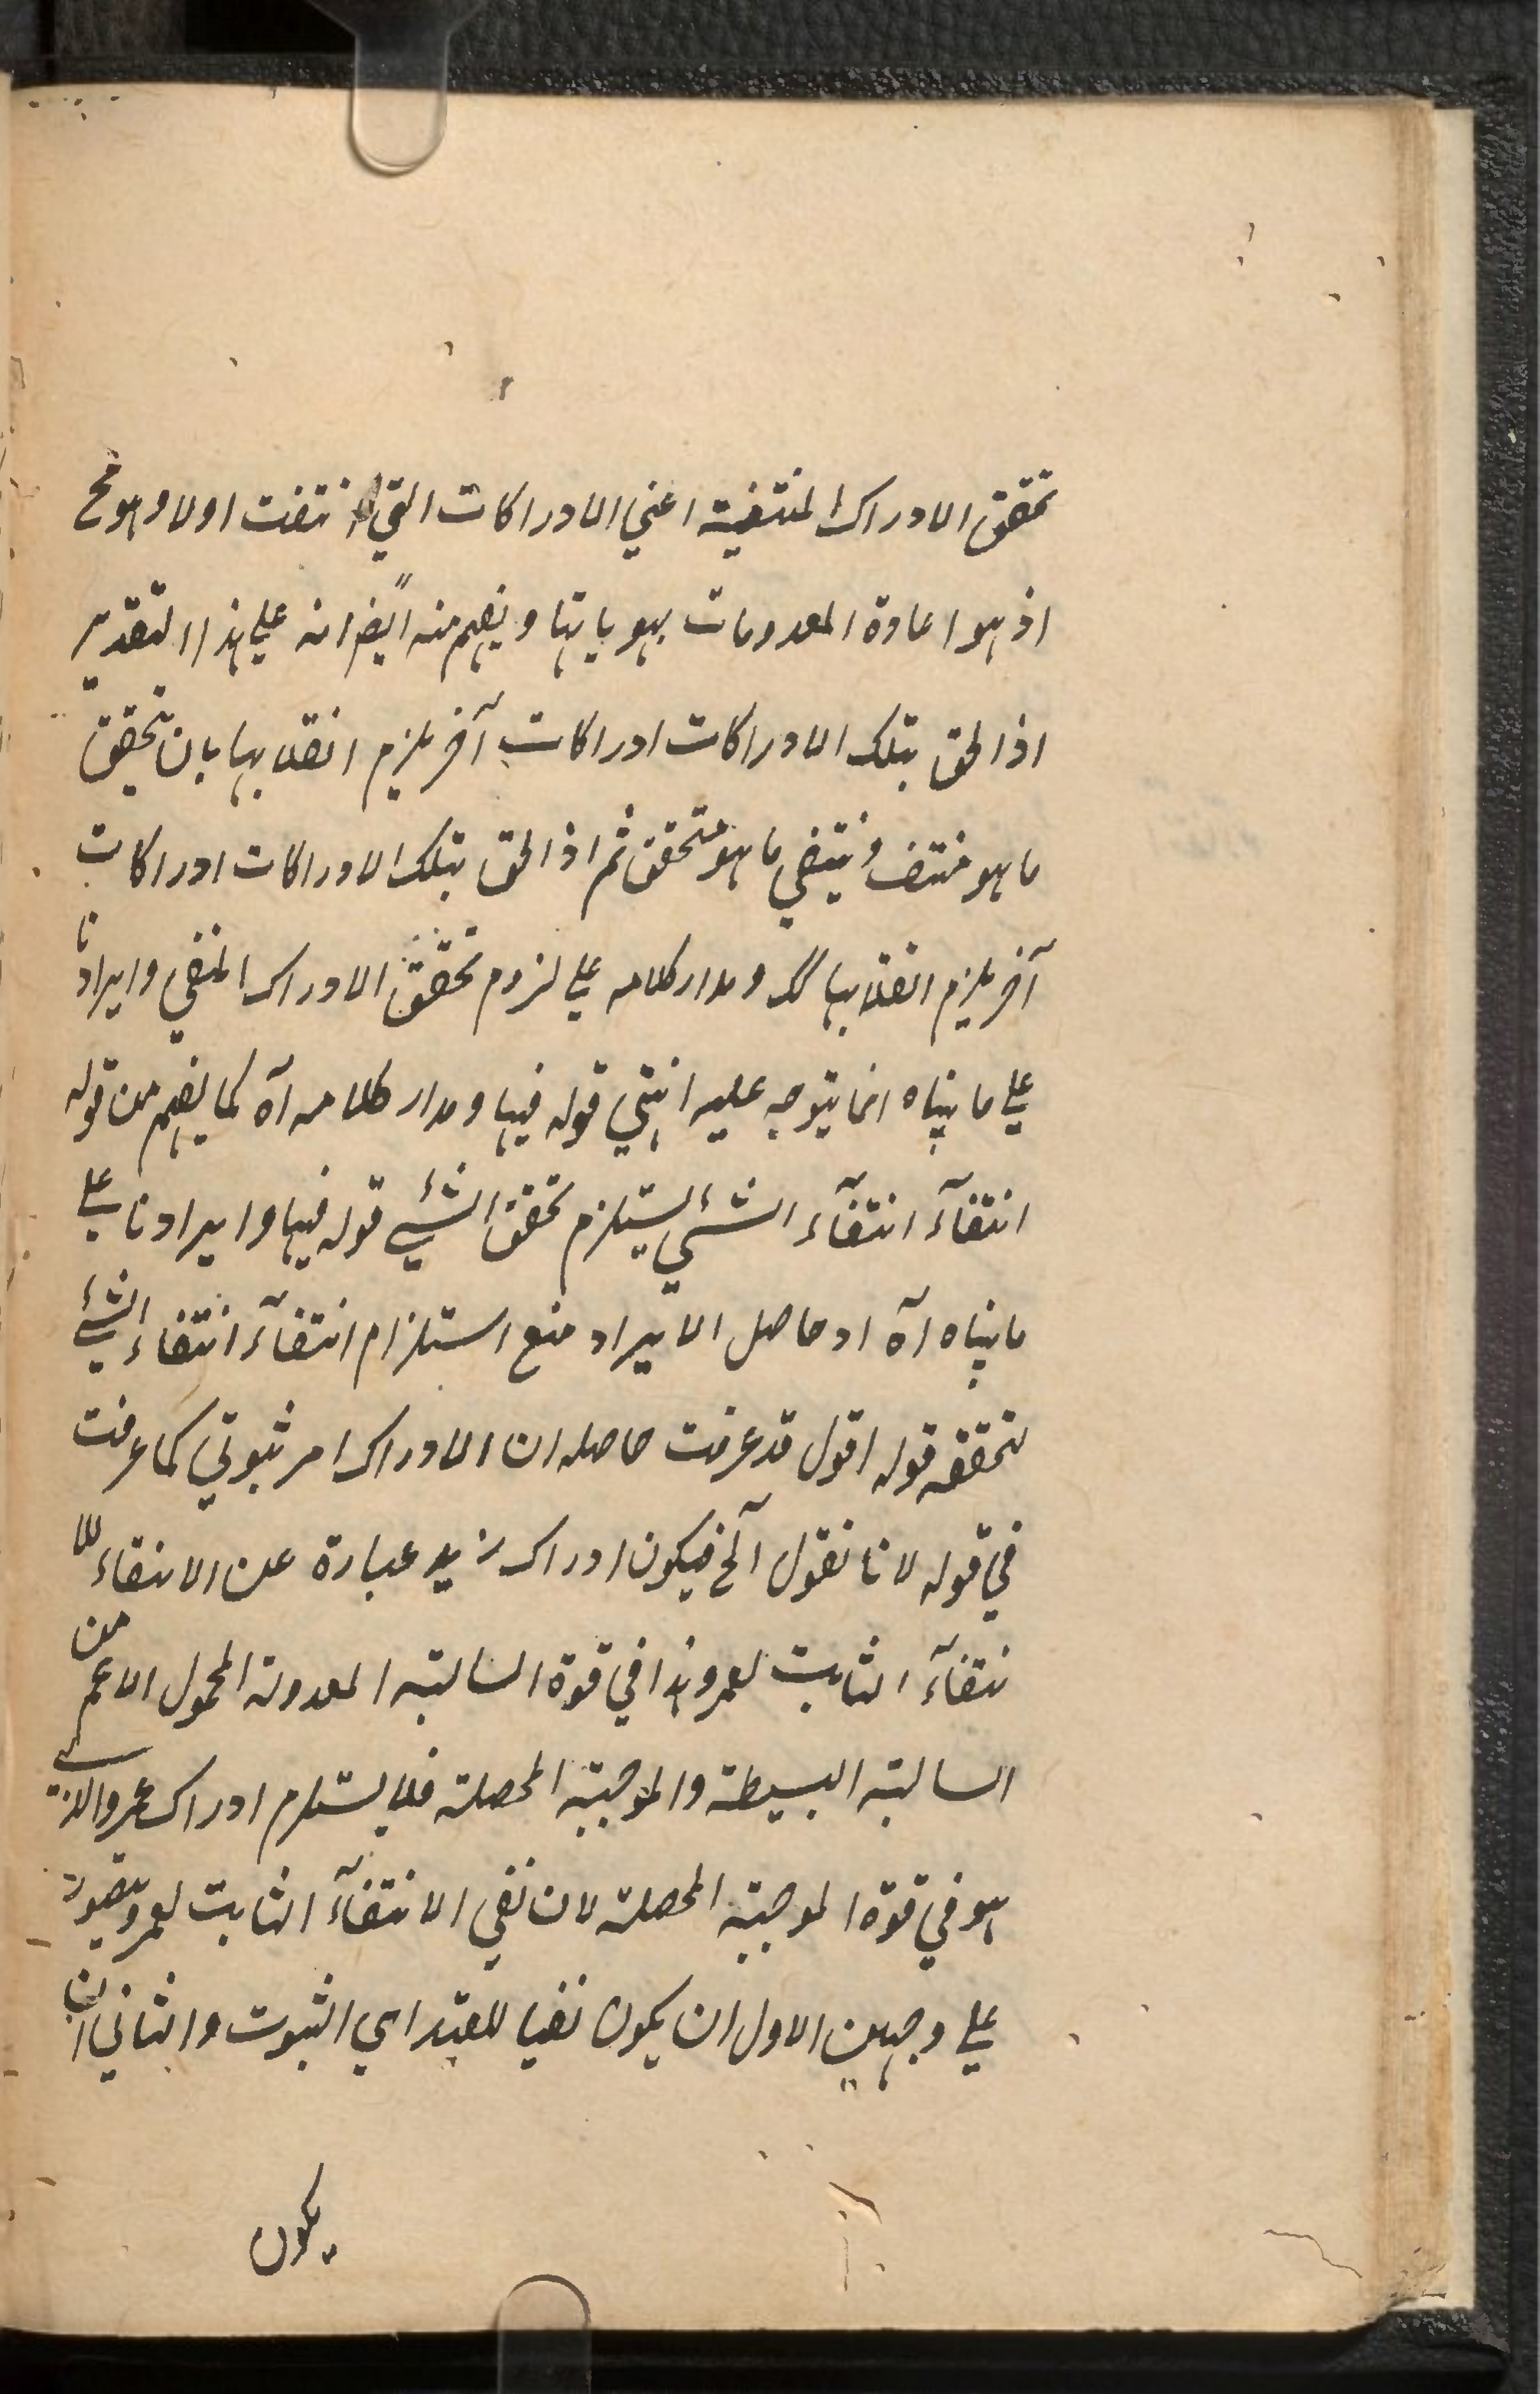 تحقق الادراك المنتفية اعني الادراكات التي انتفت اولا وهو مح
اذ هو اعادة المعدومات بهوياتها ويفهم منه ايضًا انه علي هذا التقدير
اذا لحق بتلك الادراكات ادراكات آخر يلزم انقلابها بان يتحقق
ما هو منتف وينتفي ما هو متحقق ثم اذا لحق بتلك الادراكات ادراكات
آخر يلزم انقلابها كك ومدار كلامه علي لزوم تحقق الادراك المنفي وايرادنا
علي ما بيناه انما يتوجه عليه انتهي قوله فيها ومدار كلامه آه كما يفهم من قوله
انتفآء انتفآء الشئي يستلزم تحقق الشئي قوله فيها وايرادنا علي
ما بيناه آه اد حاصل الايراد منع استلزام انتفآء انتفاء الشئي
تحققه قوله اقول قد عرفت حاصله ان الادراك امر ثبوتي كما عرفت
في قوله لانا نقول آلخ فيكون ادراك زيد عبارة عن الانتفاء للا
نتفآء الثابت لعمرو هذا في قوة السالبة المعدولة المحمول الاعم من
السالبة البسيطة والموجبة المحصلة فلا يستلزم ادراك عمرو الذي
هو في قوة الموجبة المحصلة لان نفي الانتفآء الثابت لعمرو يتصور
علي وجهين الاول ان يكون نفيا للقيد اي الثبوت والثاني ان
يكون